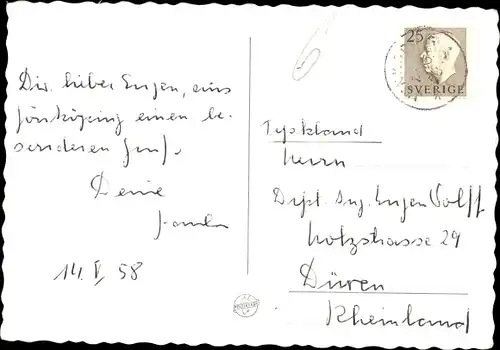 Dir, lieber Eugen, aus
Jönköping einen be-
sonderen Gruß.
Deine
14. V. 58
25
SVERIGE
Tyskland
Herrn
Dipl. Ing. Eugen Wolff
Holzstrasse 29
Düren
Rheinland